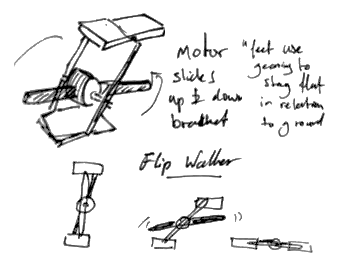 Motor
slides
up & down
bracket
"feet use
gearing to
stay flat
in relation
to ground
Flip Walker